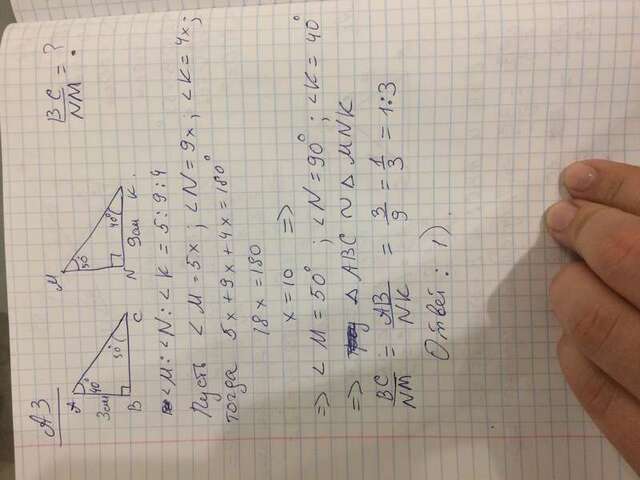 А3
BC/NM = ?
A
40°
3см
B
50°
C
M
50°
N
40°
K.
9см
∠M:∠N:∠K = 5:9:4
Пусть ∠M=5x; ∠N=9x; ∠K=4x;
тогда 5x+9x+4x=180°
18x=180
x=10 =>
=> ∠M=50°; ∠N=90°; ∠K=40°
=> △ABC ~ △MNK
BC/NM = AB/NK = 3/9 = 1/3 = 1:3
Ответ: 1).